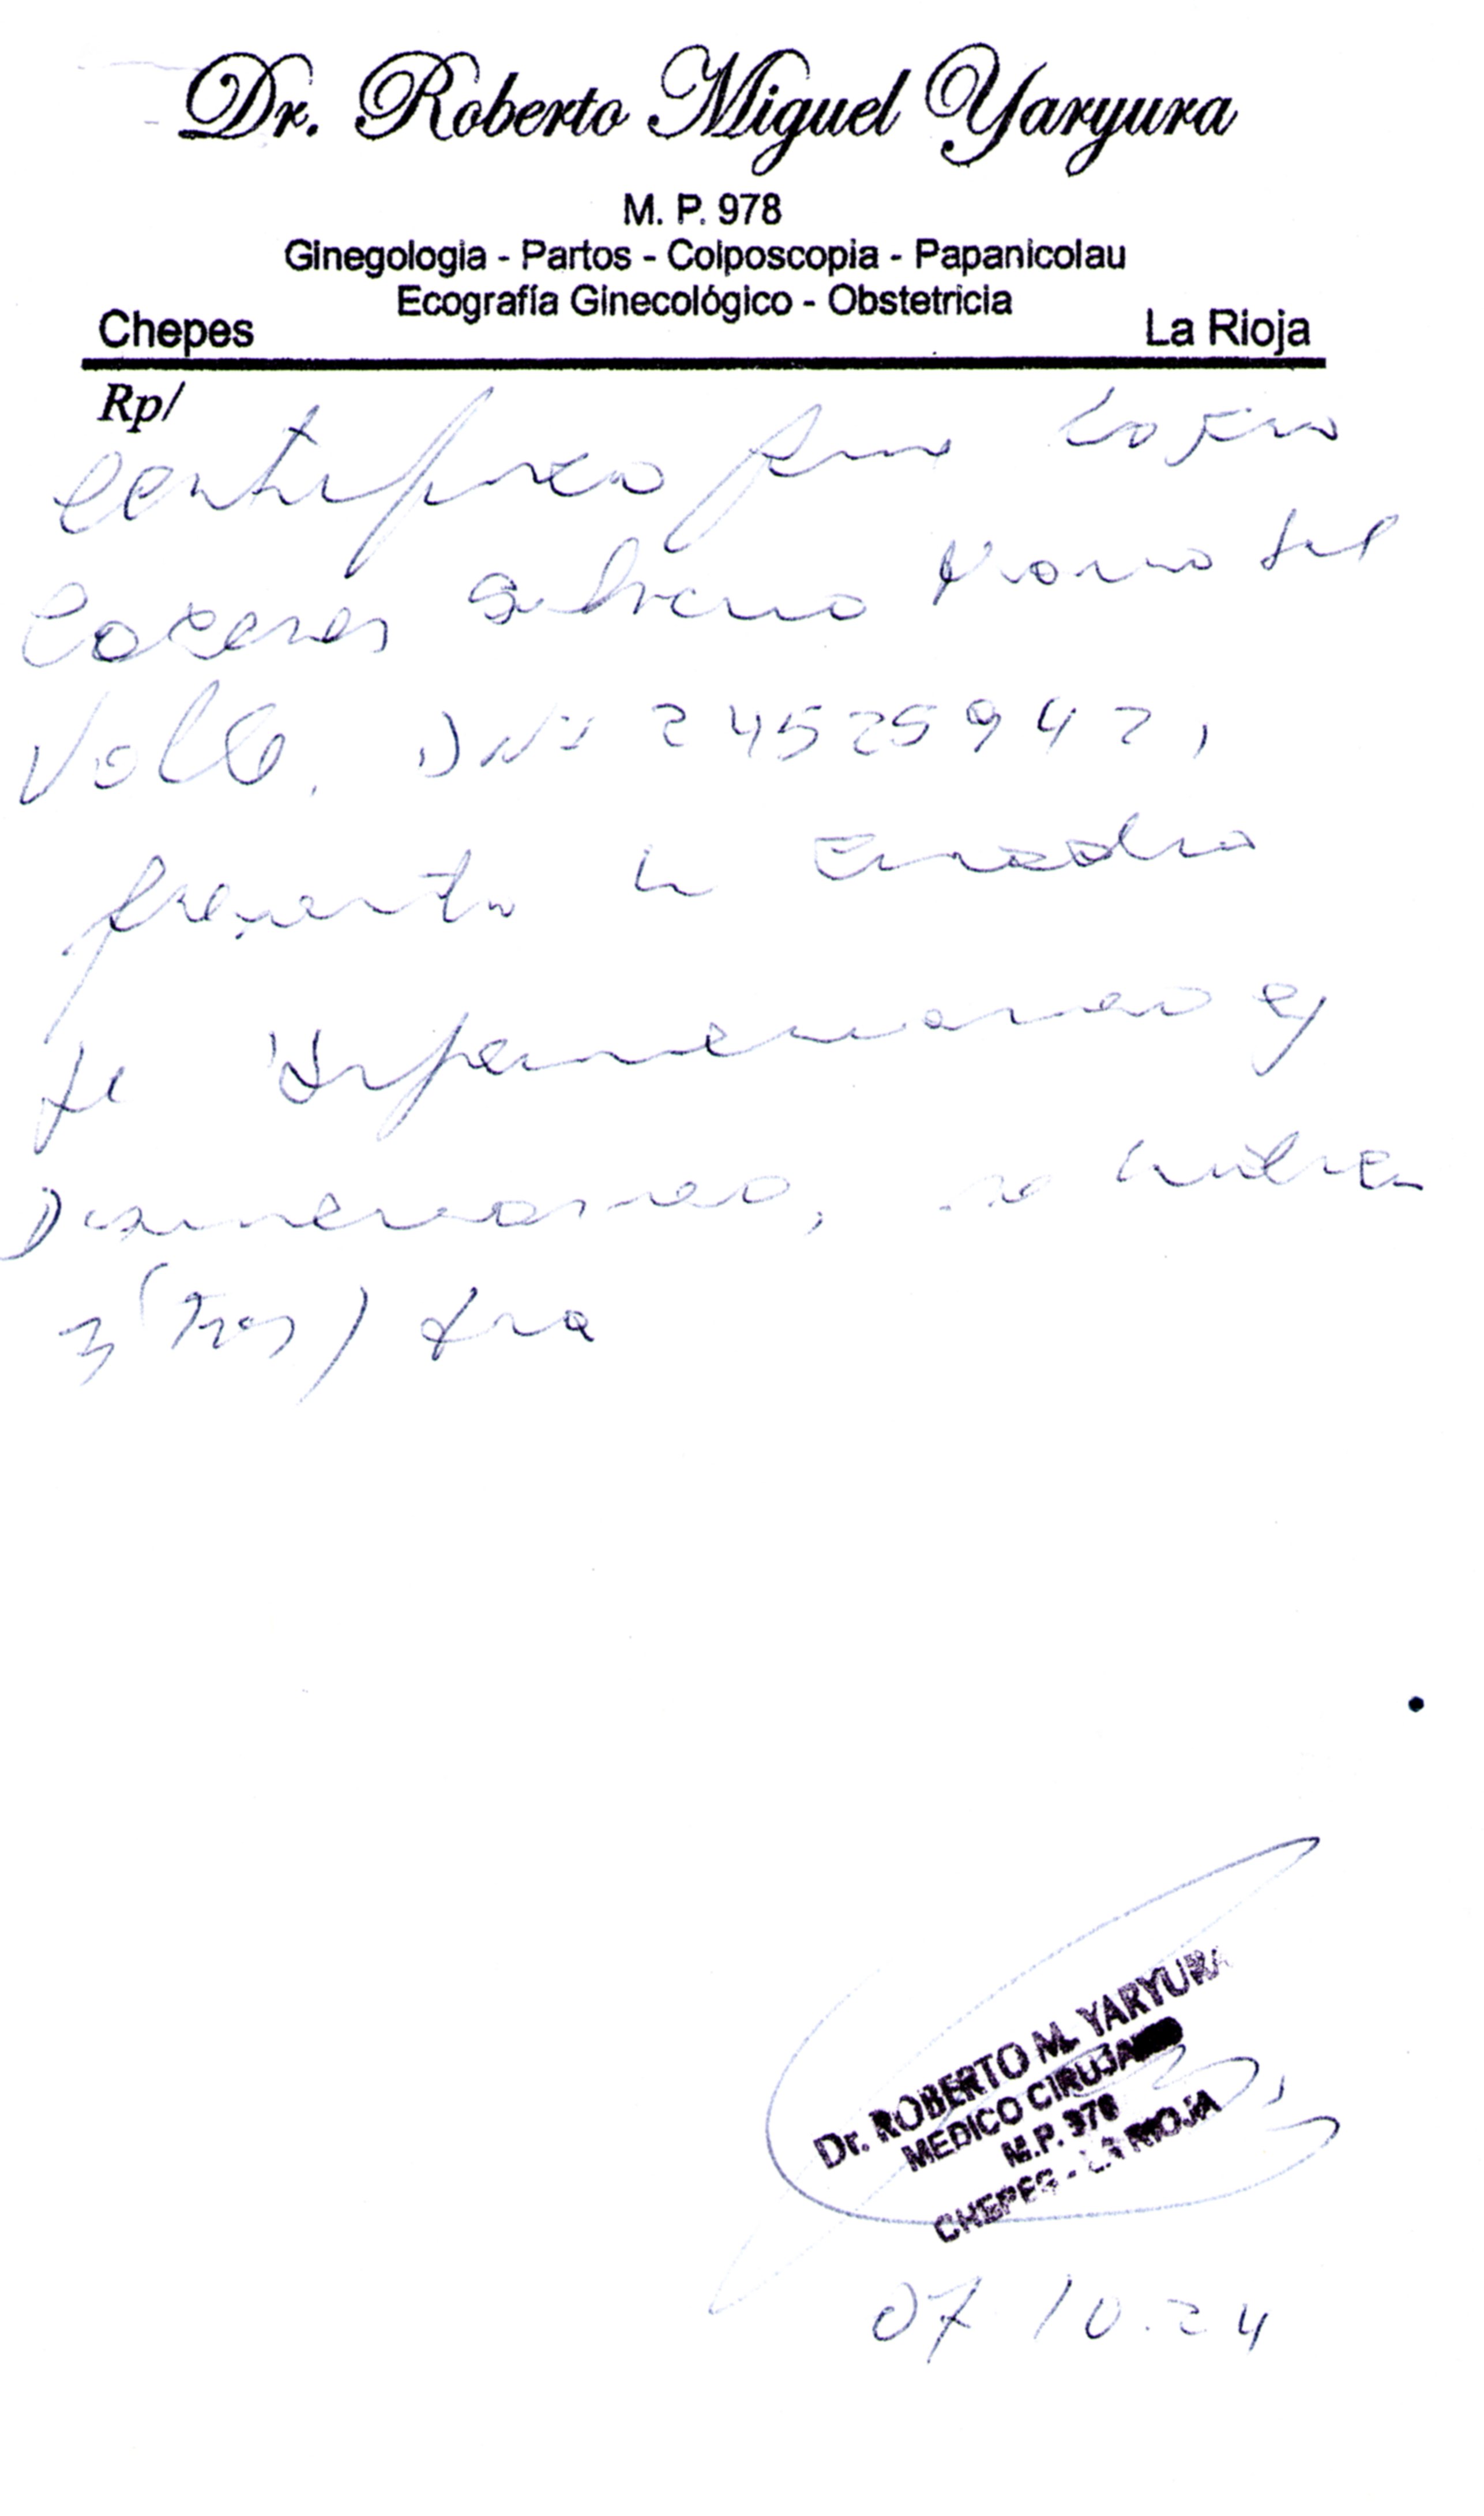 Dr. Roberto Miguel Yaryura
M. P. 978
Ginegologia - Partos - Colposcopia - Papanicolau
Ecografía Ginecológico - Obstetricia
Chepes La Rioja
Rp/
Certifico que
Caceres Silvana María del
Valle, DNI 24525942,
presenta un
de Hipermenorrea y
Dismenorrea, se indica
3 (Tres) dia
Dr. ROBERTO M. YARYURA
MEDICO CIRUJANO
M.P. 978
CHEPES - LA RIOJA
07 10.24